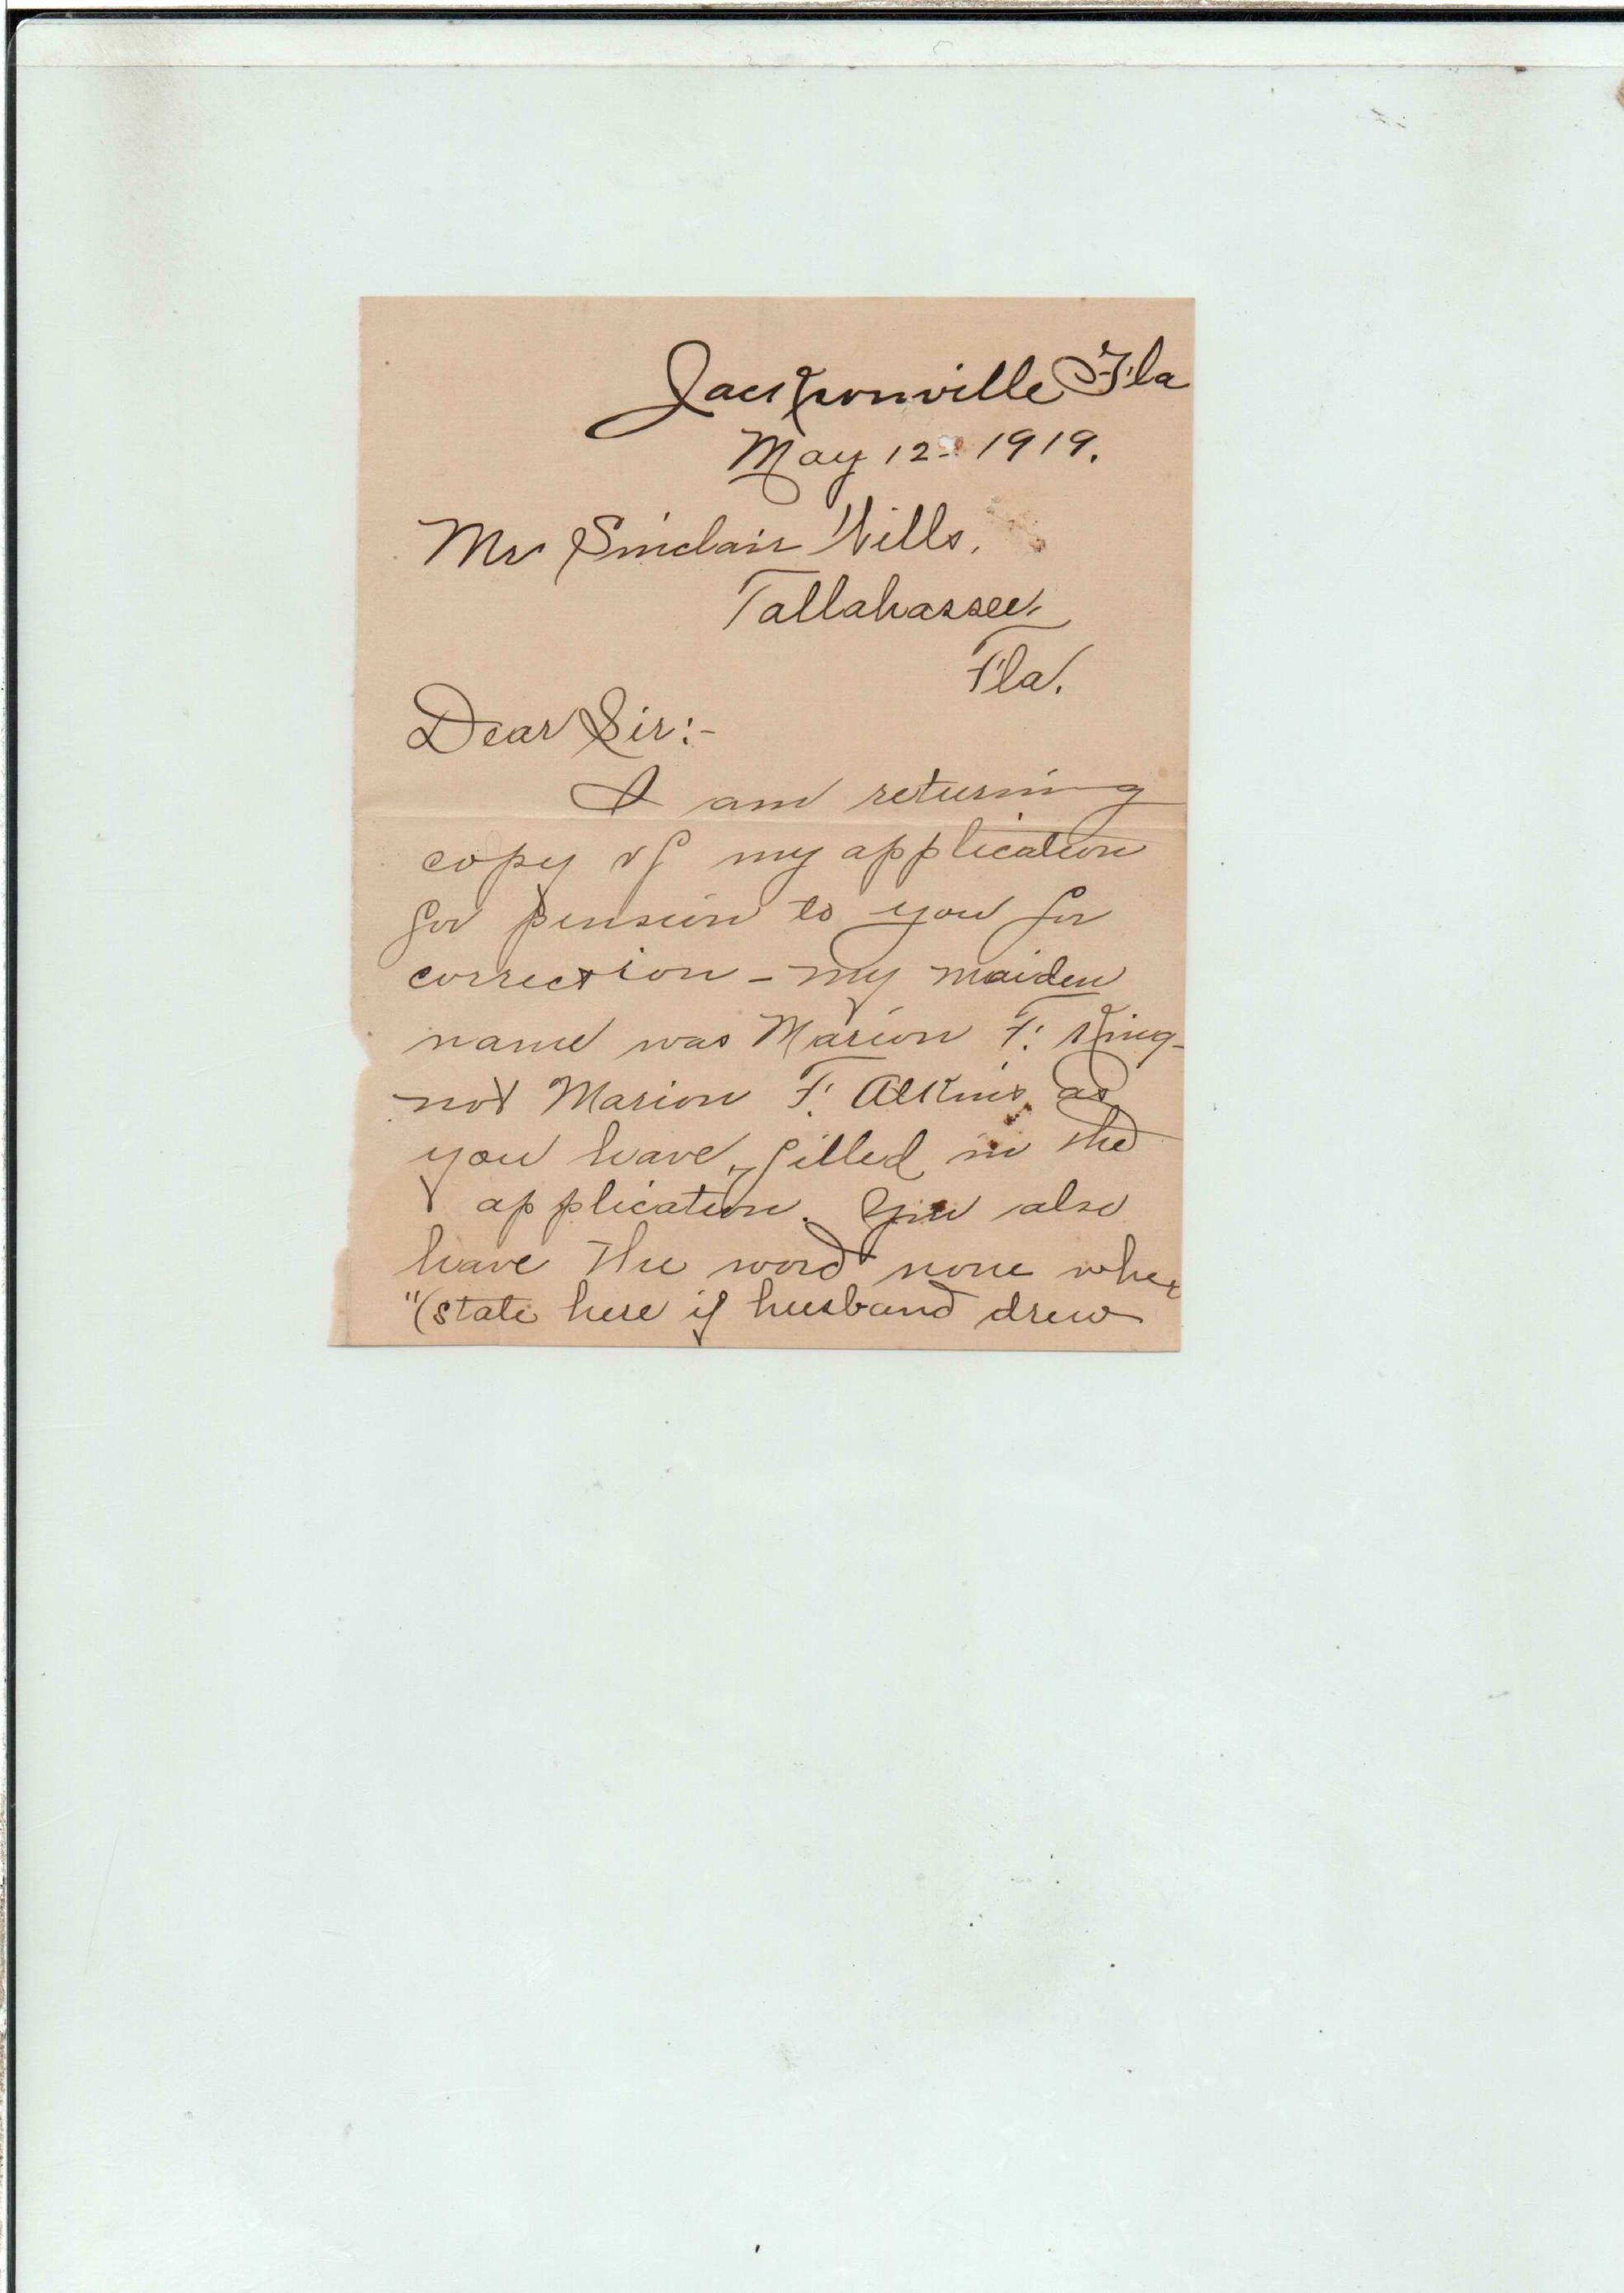 Jacksonville Fla
May 12- 1919.
Mr Sinclair Wills,
Tallahassee,
Fla.
Dear Sir:-
I am returning
copy of my application
for pension to you for
correction - my maiden
name was Marion F. King -
not Marion F. Atkins, as
you have, filled in the
application. You also
have the word none wher
"(state here if husband drew